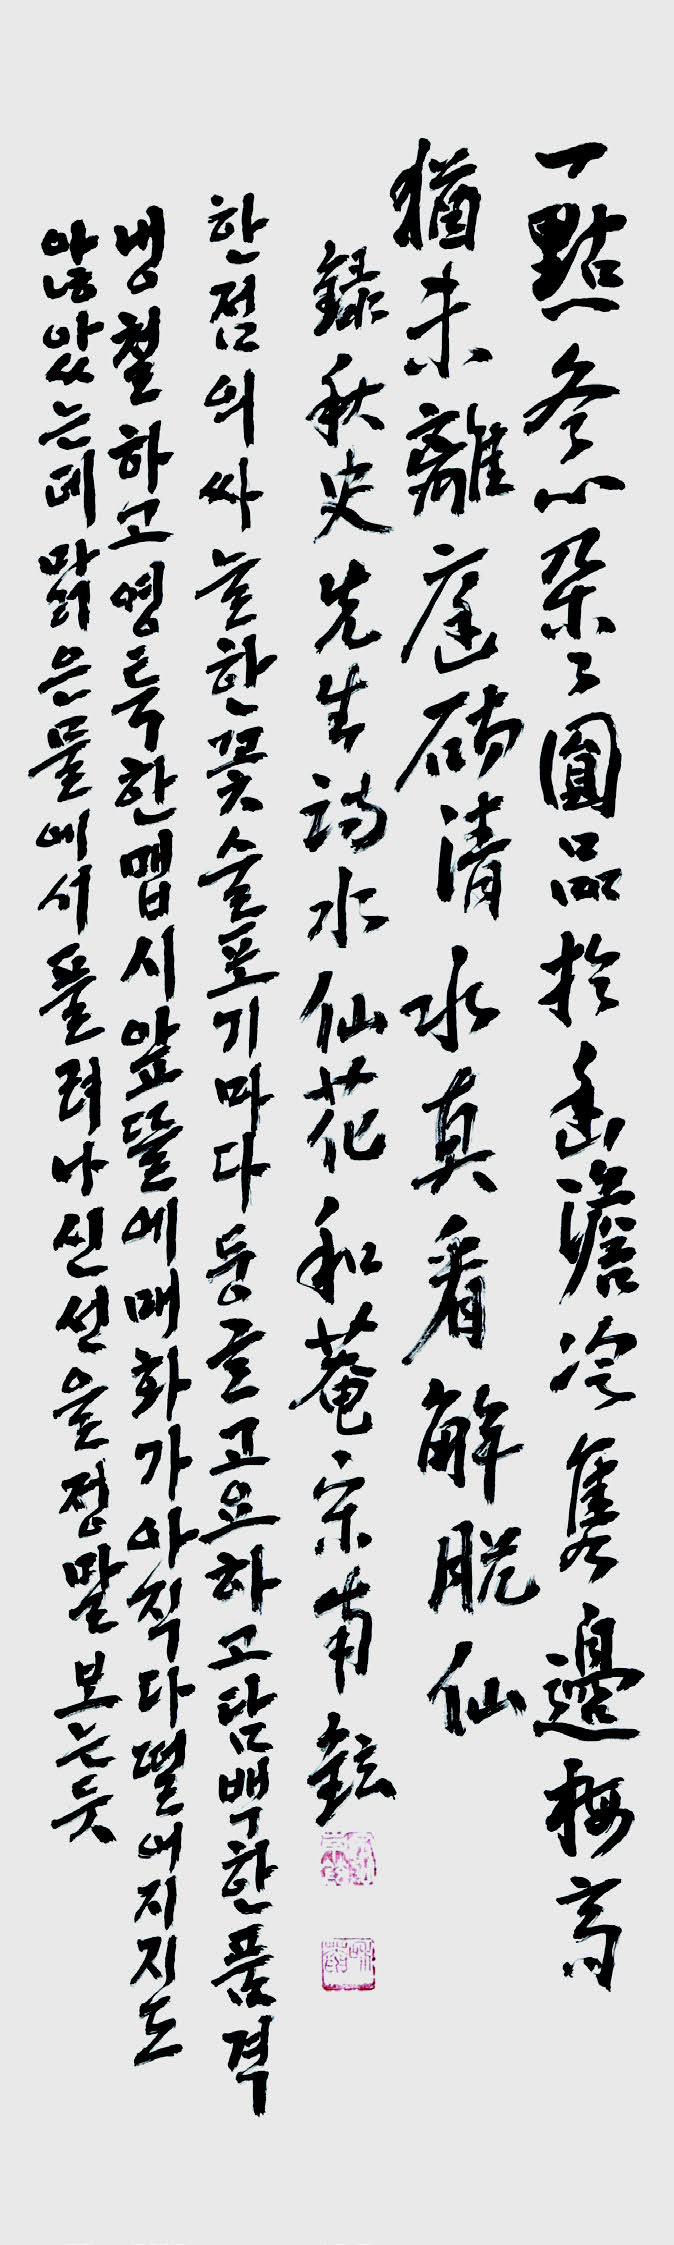 一點冬心朶々圓品於幽澹冷雋邊梅高
猶未離庭砌清水真看解脫仙
錄秋史先生詩水仙花和菴宗甫鉉
한점의싸늘한꽃술포기마다둥글고요하고담백한품격
냉철하고영특한맵시앞뜰에매화가아직다떨어지지도
않았는데맑은물에서풀려나신선을정말보는듯